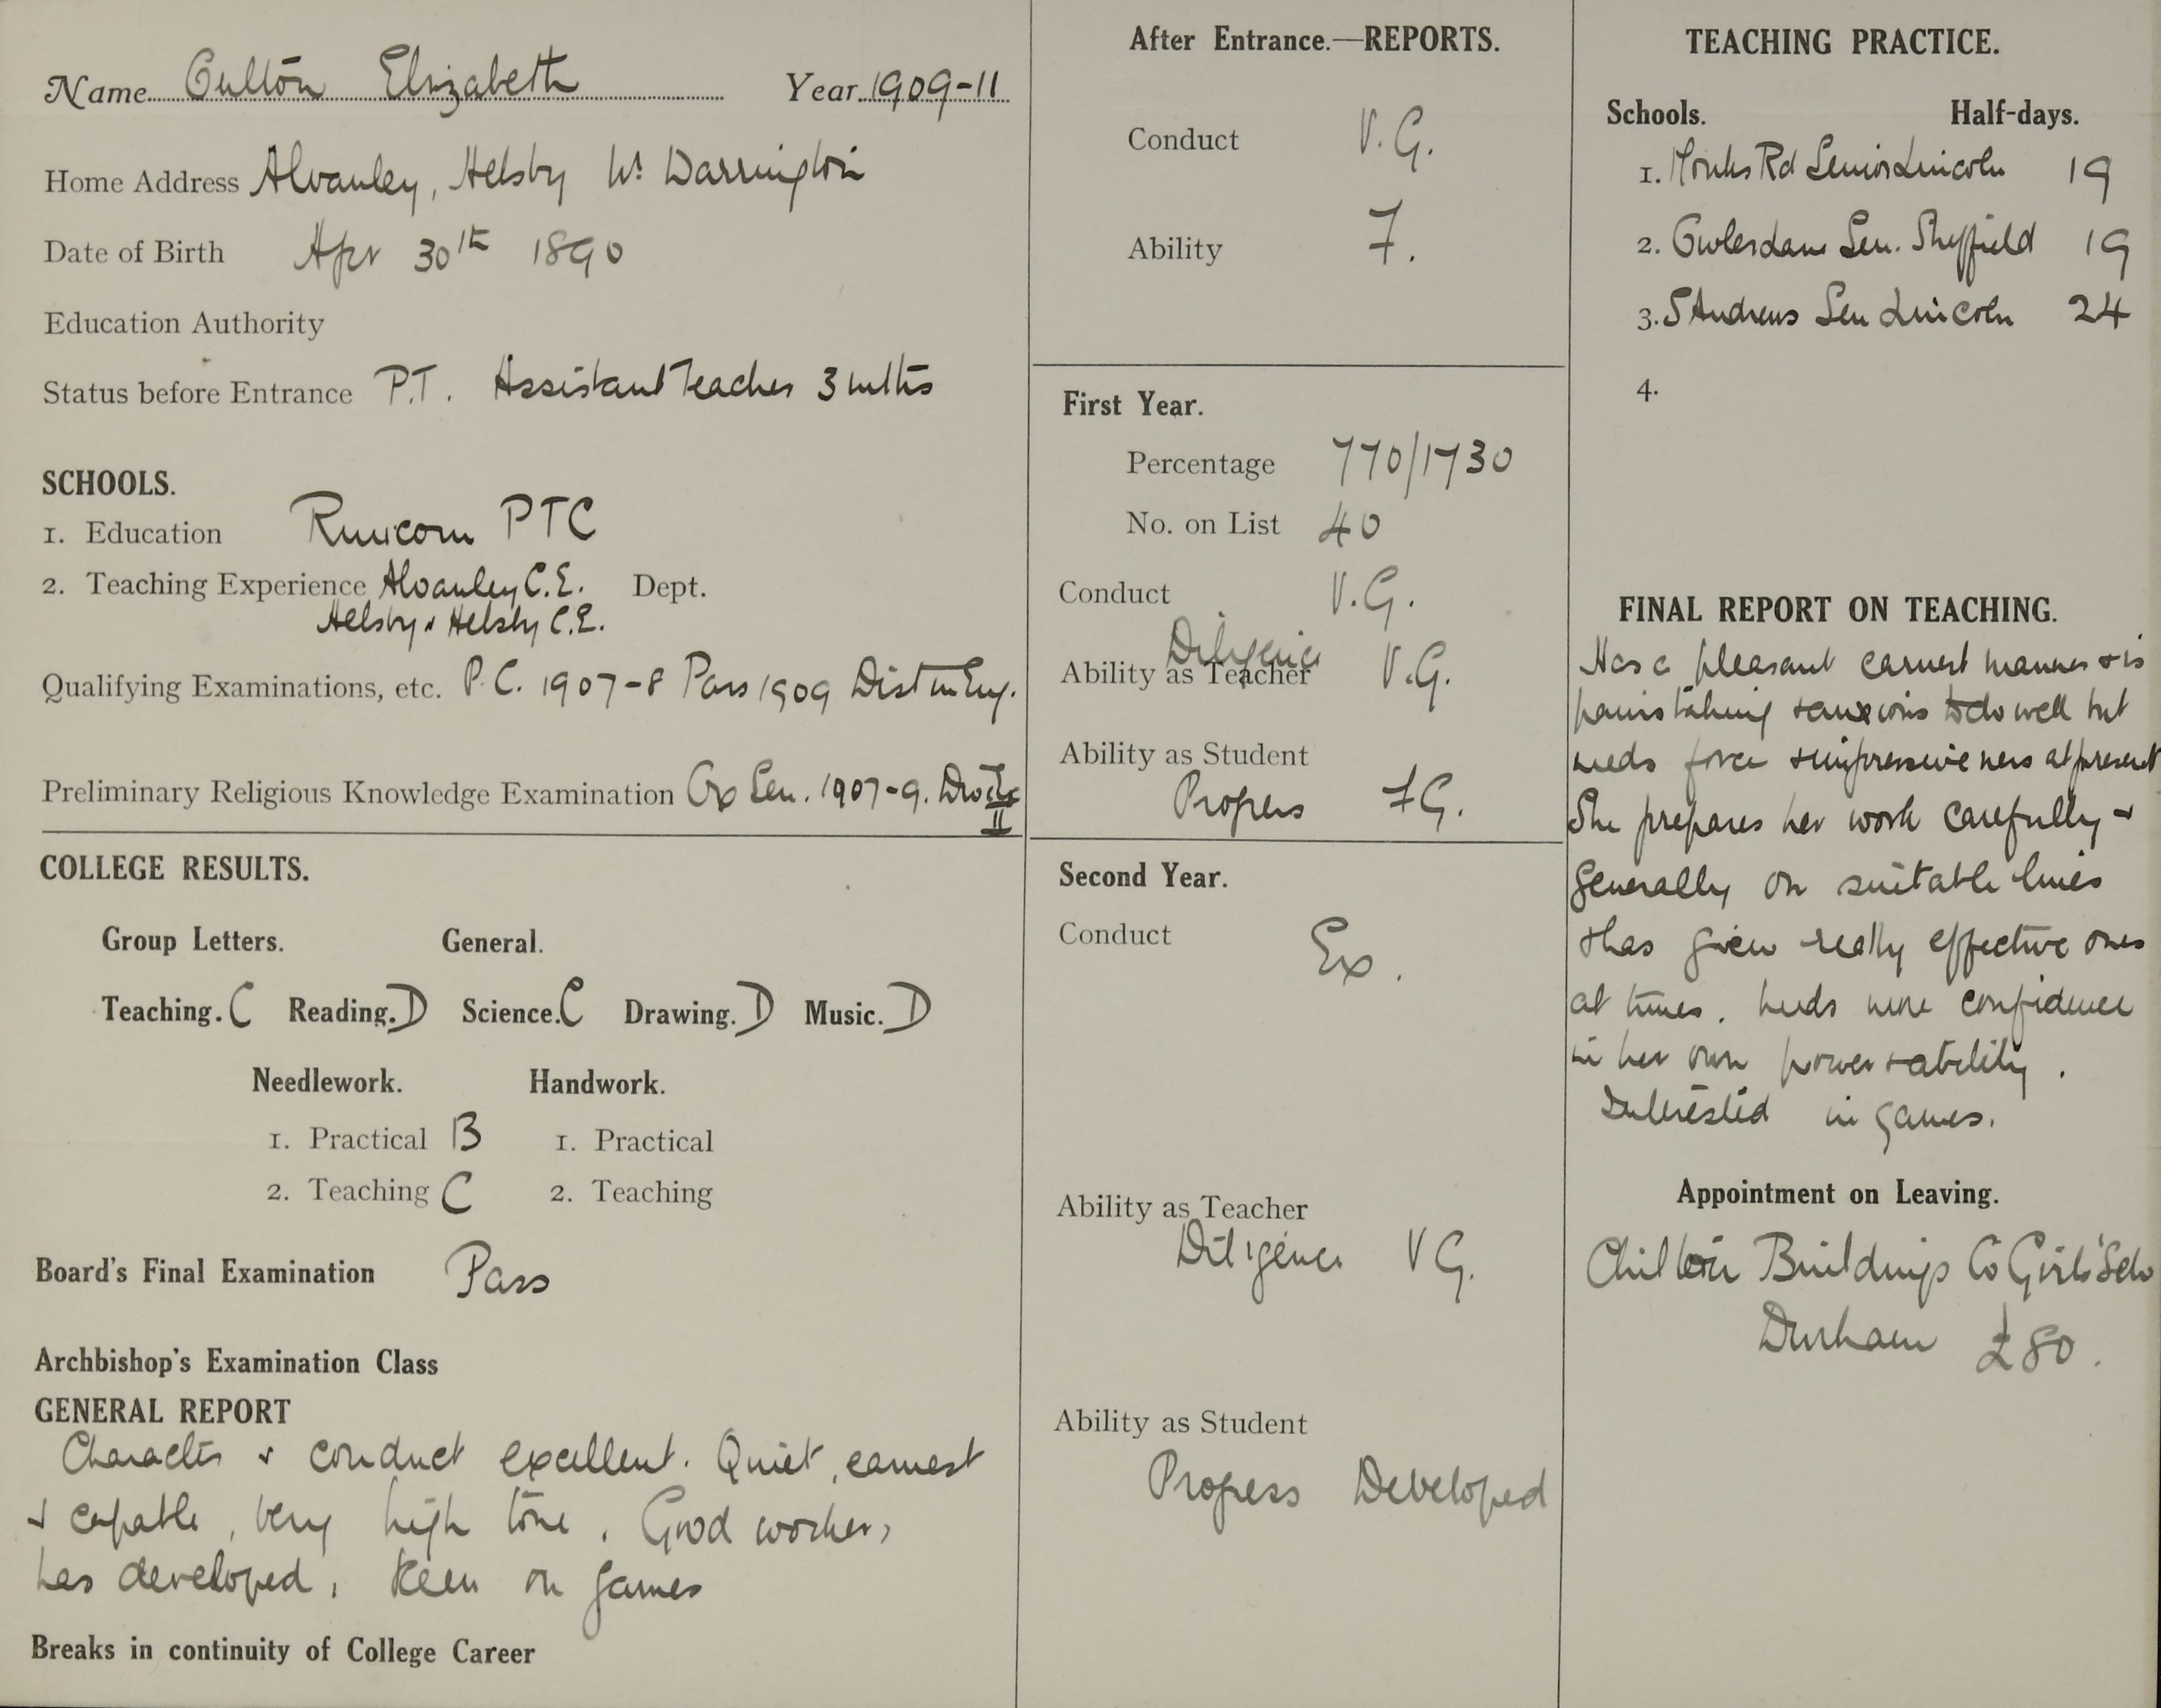 Name Oulton Elizabeth Year 1909-11
Home Address Alvanley, Helsby Nr Warrington
Date of Birth Apr 30th 1890
Education Authority
Status before Entrance P.T. Assistant Teacher 3 mths
SCHOOLS.
1. Education Runcorn PTC
2. Teaching Experience Alvanley C.E. Dept.
Helsby & Helsby C.E.
Qualifying Examinations, etc. P.C. 1907-8 Pass 1909 Dist in Eng.
Preliminary Religious Knowledge Examination Ox Sen. 1907-9.
II
COLLEGE RESULTS.
Group Letters. General.
Teaching. C Reading. D Science. C Drawing. D Music. D
Needlework. Handwork.
1. Practical B 1. Practical
2. Teaching C 2. Teaching
Board's Final Examination Pass
Archbishop's Examination Class
GENERAL REPORT
Character & conduct excellent. Quiet, earnest
& capable, very high tone. Good worker,
has developed, keen on games
Breaks in continuity of College Career
After Entrance.—REPORTS.
Conduct V.G.
Ability F.
First Year.
Percentage 770/1730
No. on List 40
Conduct V.G.
Diligence
Ability as Teacher V.G.
Ability as Student
Progress FG.
Second Year.
Conduct Ex.
Ability as Teacher
Diligence VG.
Ability as Student
Progress Developed
TEACHING PRACTICE.
Schools. Half-days.
1. Monks Rd Senior Lincoln 19
2. Owlerdam Sen. Sheffield 19
3. S Andrews Sen Lincoln 24
4.
FINAL REPORT ON TEACHING.
Has a pleasant earnest manner & is
painstaking & anxious to do well but
needs force & impressiveness at present
She prepares her work carefully &
generally on suitable lines
& has given really effective ones
at times. Needs more confidence
in her own power & ability.
Interested in games.
Appointment on Leaving.
Chilton Buildings Co Girls' Sch
Durham £80.